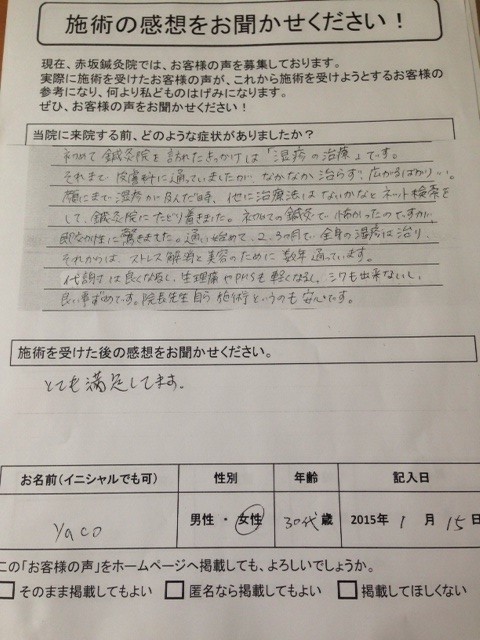 施術の感想をお聞かせください！
現在、赤坂鍼灸院では、お客様の声を募集しております。
実際に施術を受けたお客様の声が、これから施術を受けようとするお客様の
参考になり、何より私どものはげみになります。
ぜひ、お客様の声をお聞かせください！
当院に来院する前、どのような症状がありましたか？
初めて鍼灸院を訪れたきっかけは「湿疹の治療」です。
それまで皮膚科に通っていましたが、なかなか治らず、広がるばかり…。
顔にまで湿疹が及んだ時、他に治療法はないかなとネット検索を
して、鍼灸院にたどり着きました。初めての鍼灸で怖かったのですが、
即効性に驚きました。通い始めて、2、3ヶ月で全身の湿疹は治り、
それからは、ストレス解消と美容のために数年通っています。
代謝は良くなるし、生理痛やPMSも軽くなるし、シワも出来ないし、
良い事ずめです。院長先生自ら施術というのも安心です。
施術を受けた後の感想をお聞かせください。
とても満足してます。
お名前(イニシャルでも可) 性別 年齢 記入日
yaco 男性・女性 30代歳 2015年 1月 15日
この「お客様の声」をホームページへ掲載しても、よろしいでしょうか。
そのまま掲載してもよい 匿名なら掲載してもよい 掲載してほしくない